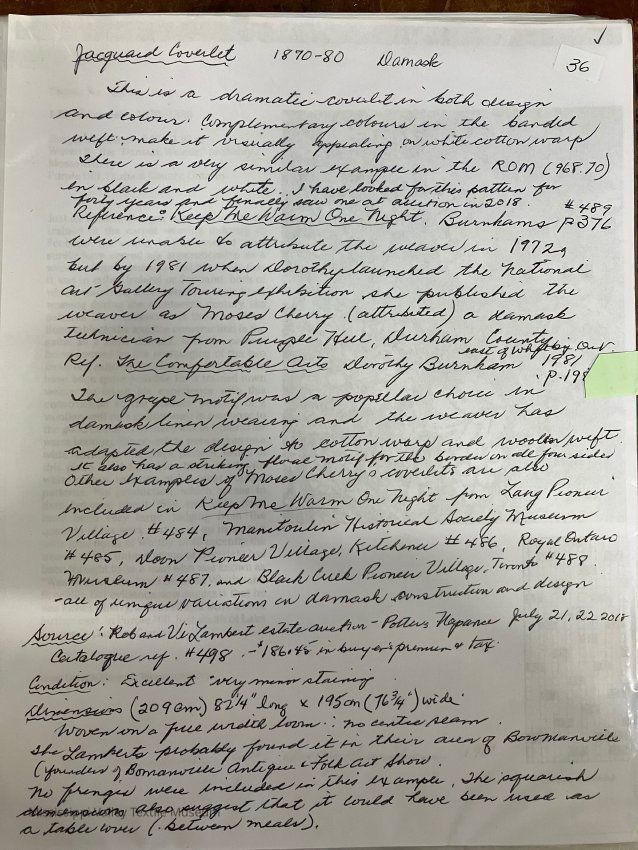 ✓
Jacquard Coverlet 1870-80 Damask 36
This is a dramatic coverlet in both design
and colour. Complementary colours in the banded
weft make it visually appealing on white cotton warp
There is a very similar example in the ROM (968.70)
in black and white. I have looked for this pattern for
forty years and finally saw one at auction in 2018. #489
Reference: Keep Me Warm One Night, Burnhams p376
were unable to attribute the weaver in 1972,
but by 1981 when Dorothy launched the National
Art Gallery Touring exhibition she published the
weaver as Moses Cherry (attributed) a damask
technician from Purple Hill, Durham County
east of Whitby Ont.
Ref. The Comfortable Arts Dorothy Burnham 1981
p.198
The grape motif was a popular choice in
damask linen weaving and the weaver has
adapted the design to cotton warp and woollen weft.
It also has a striking floral motif for the border on all four sides
Other examples of Moses Cherry's coverlets are also
included in Keep Me Warm One Night from Lang Pioneer
Village #484, Manitoulin Historical Society Museum
#485, Doon Pioneer Village, Kitchener #486, Royal Ontario
Museum #487, and Black Creek Pioneer Village, Toronto #488.
-all of unique variations in damask construction and design.
Source: Rob and Vi Lambert estate auction - Potters, Napanee July 21, 22 2018
Catalogue ref. #498. -$186.45 in buyer's premium & tax
Condition: Excellent very minor staining
Dimensions (209cm) 82 1/4" long x 195cm (76 3/4") wide
Woven on a full width loom: no centre seam.
The Lamberts probably found it in their area of Bowmanville
(founders of Bomanville Antique & Folk Art Show.
No fringes were included in this example. The squarish
dimensions also suggest that it could have been used as
Textile Museum
a table cover (between meals).